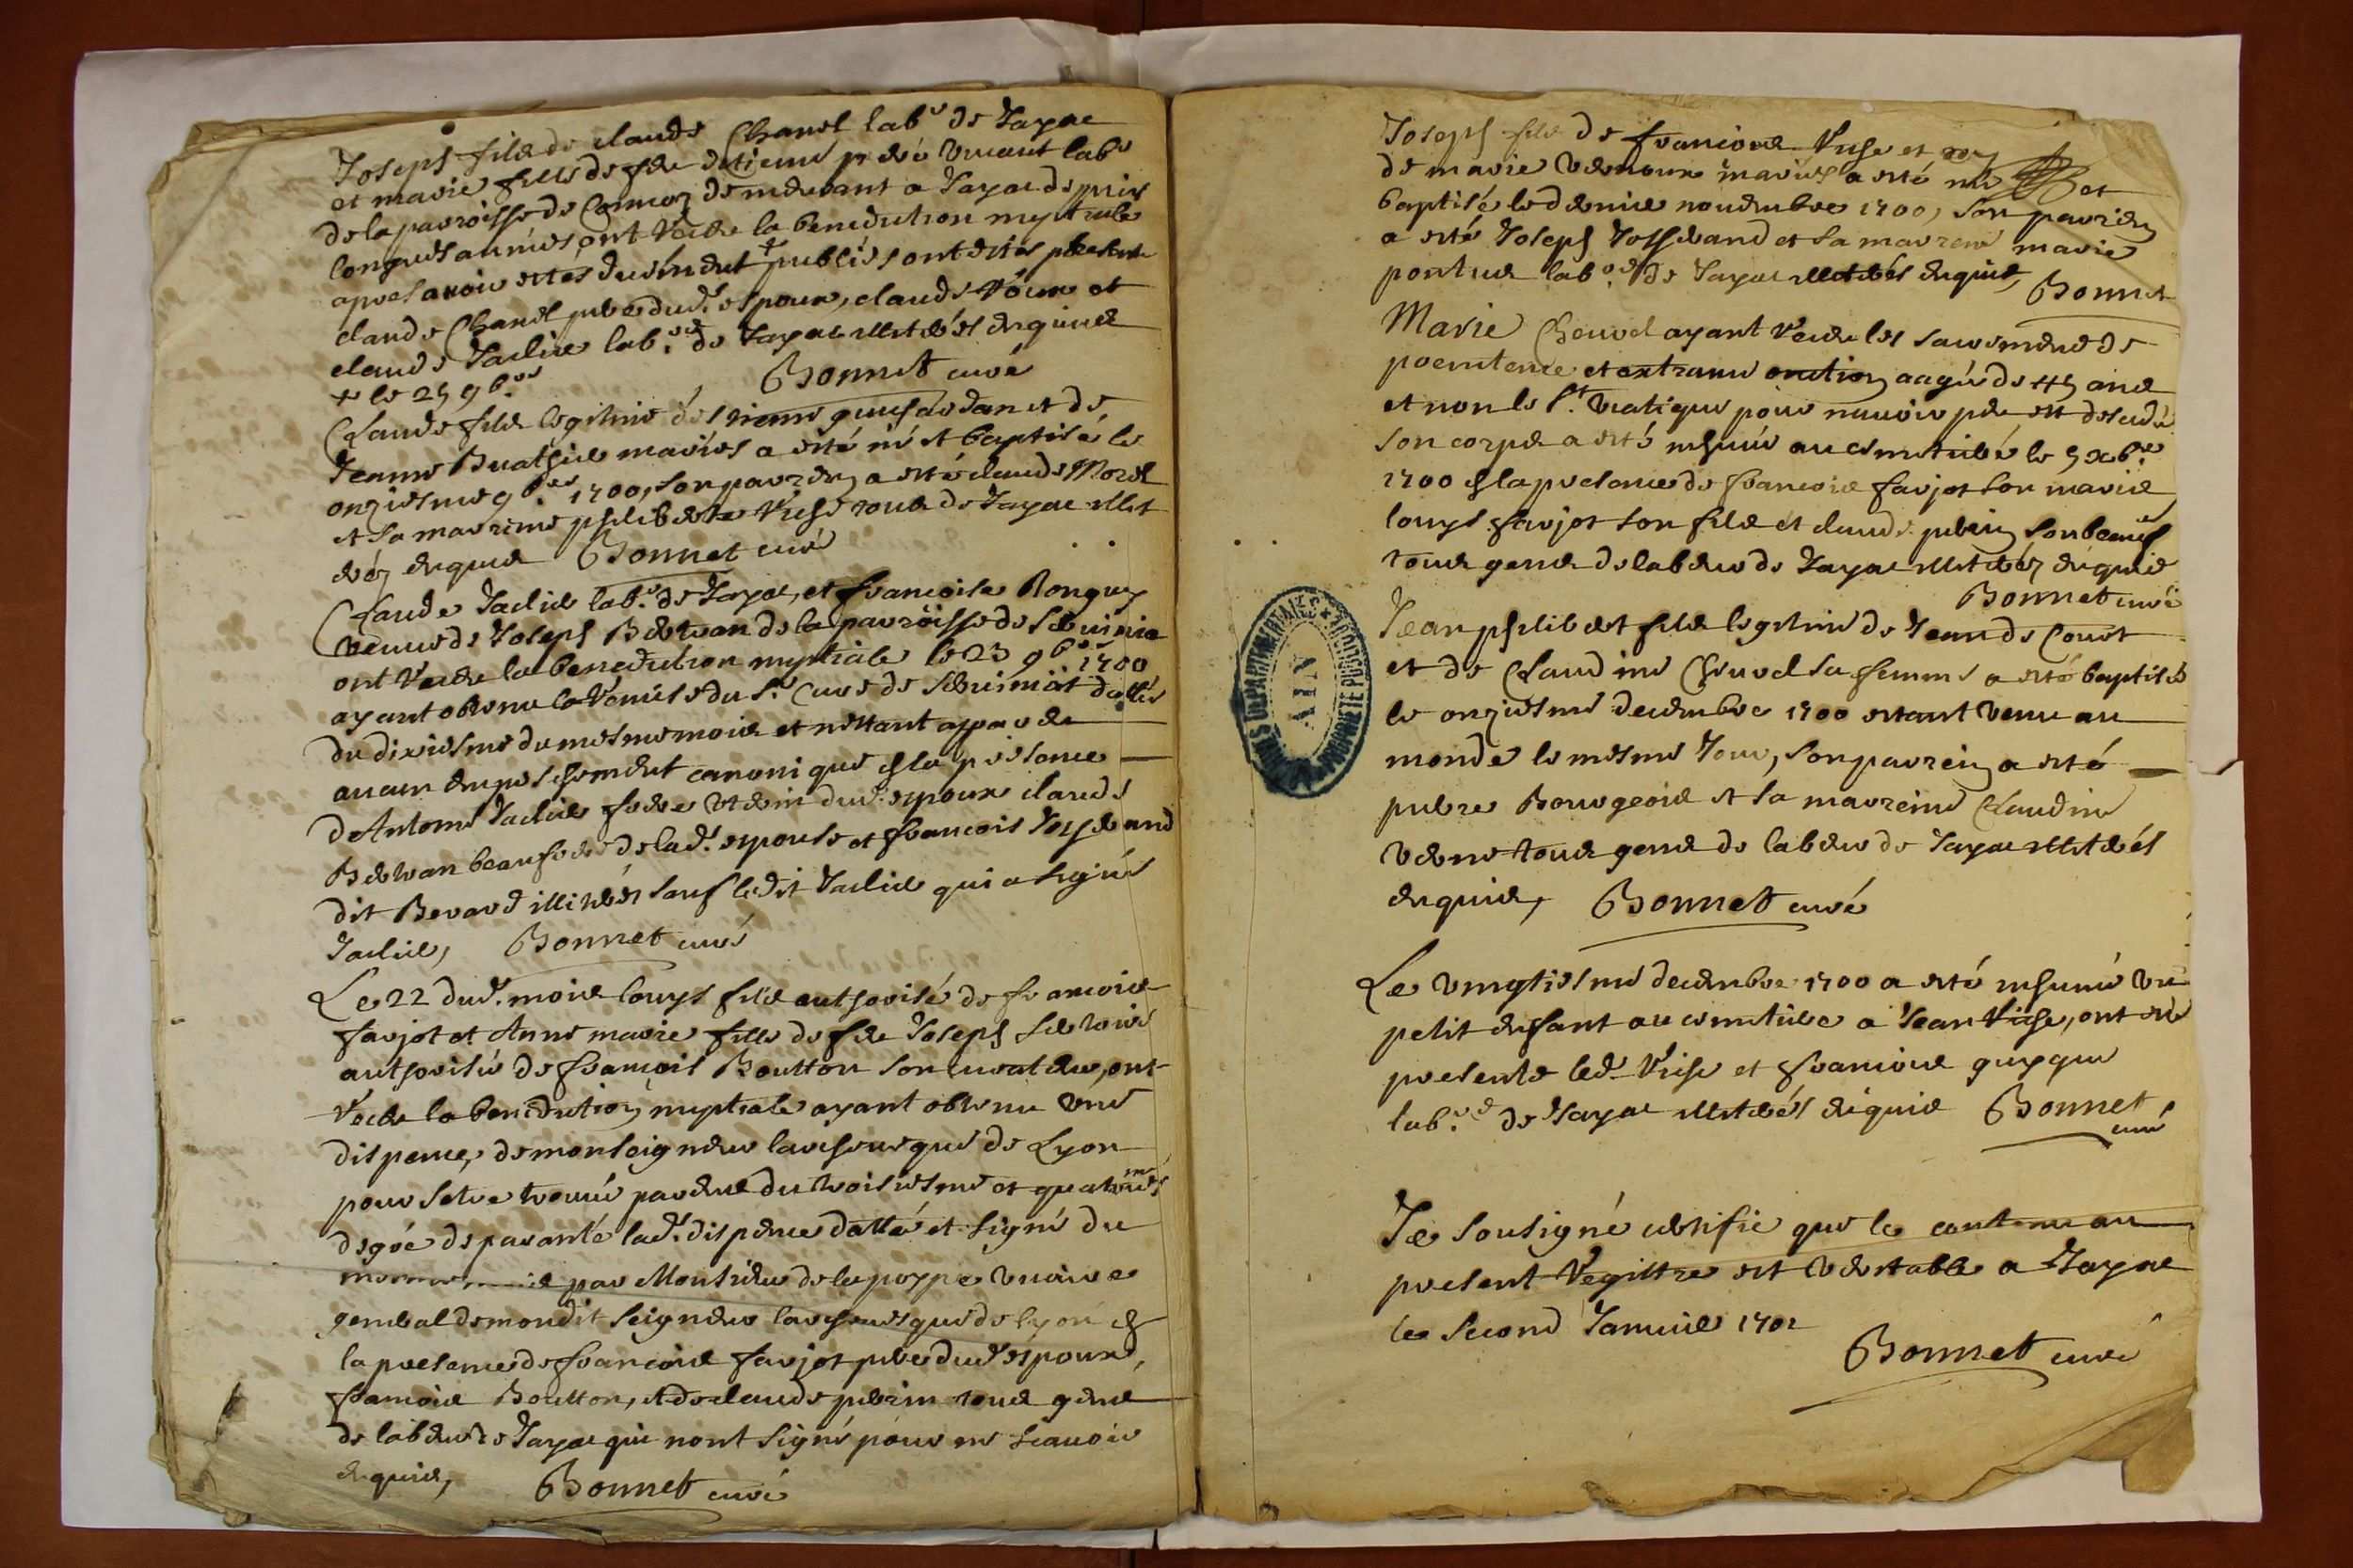 Joseph fils de claude Chanel lab.r de Jayac
et marie fille de feu Estienne vivant labr
de la parroisse de Cormoz demeurant a Jayac depuis
longues années, ont receu la benediction nuptiale
apres avoir estés duement + publiés ont estés presents
claude Chanel pere dud. espoux, claude Roux et
claude Jaclier lab.rs de Jayac illiterés enquis
+ le 25 9b.re Bonnet curé
Claude fils legitime d'estienne et de
Jeanne Buathier mariés a esté né et baptisé le
onziesme 9b.re 1700, son parrein a esté claude Morel
et sa marreine philiberte Viché tous de Jayac illit
erés enquis Bonnet curé
Claude Jaclier lab.r de Jayac, et francoise Ronguy
veuve de Joseph Bertran de la parroisse de
ont receu la benediction nuptiale le 23 9b.re 1700
ayant obtenu la remise du S.r Curé de dattée
du dixiesme du mesme mois et nestant apparu de
aucun empeschement canonique en la presence
d'Antoine Jaclier frere uterin dud. espoux claude
Bertran beaufrere de lad. espouse et francois Josserand
dit Berard illiterés sauf ledit Jaclier qui a signé
Jaclier, Bonnet curé
Le 22 dud. mois louys fils authorisé de francois
farjot et Anne marie fille de feu Joseph
authorisée de francois Boutton son curateur, ont
receu la benediction nuptiale ayant obtenu une
dispence, de monseigneur larchevesque de Lyon
pour sestre trouvé parens du troisiesme et quatriesme
degré de paranté lad. dispence datté et signé du
par Monsieur de la poype vicaire
general de mondit seigneur larchevesque de lyon en
la presence de francois farjot pere dud. espoux,
francois Boutton, et de claude perrin tous gens
de labeur de Jayac qui n'ont signé pour ne scavoir
enquis, Bonnet curé
Joseph fils de francois Viché et
de marie vernoux mariés a esté né et
baptisé le dernier novembre 1700, son parrein
a esté Joseph Josserand et sa marreine marie
ponthus lab.rs de Jayac illiterés enquis, Bonnet
Marie Chevrel ayant receu les sacremens de
poenitence et extreme onction aagée de ans
et non le S.t viatique pour navoir peu est decedé
son corps a esté inhumé au cimetiere le 5 xb.re
1700 en la presence de francois farjot son maris
louys farjot son fils et claude perrin son beaufils
tous gens de labeur de Jayac illiterés enquis
Bonnet curé
Jean philibert fils legitime de Jean de Couët
et de Claudine Chevrel sa femme a esté baptisé
le onziesme decembre 1700 estant venu au
monde le mesme Jour, son parrein a esté
pierre Bourgeois et sa marreine Claudine
verne tous gens de labeur de Jayac illiterés
enquis, Bonnet curé
Le vingtiesme decembre 1700 a esté inhumé un
petit enfant au cimetiere a Jean Viche, ont esté
presents led. Viche et francois
lab.rs de Jayac illiterés enquis Bonnet
curé
Je sousigné certifie que le contenu au
present Regittre est veritable a Jayac
le second Janvier 1701
Bonnet curé
ARCHIVES DEPARTEMENTALES
PROPRIETE PUBLIQUE
AIN